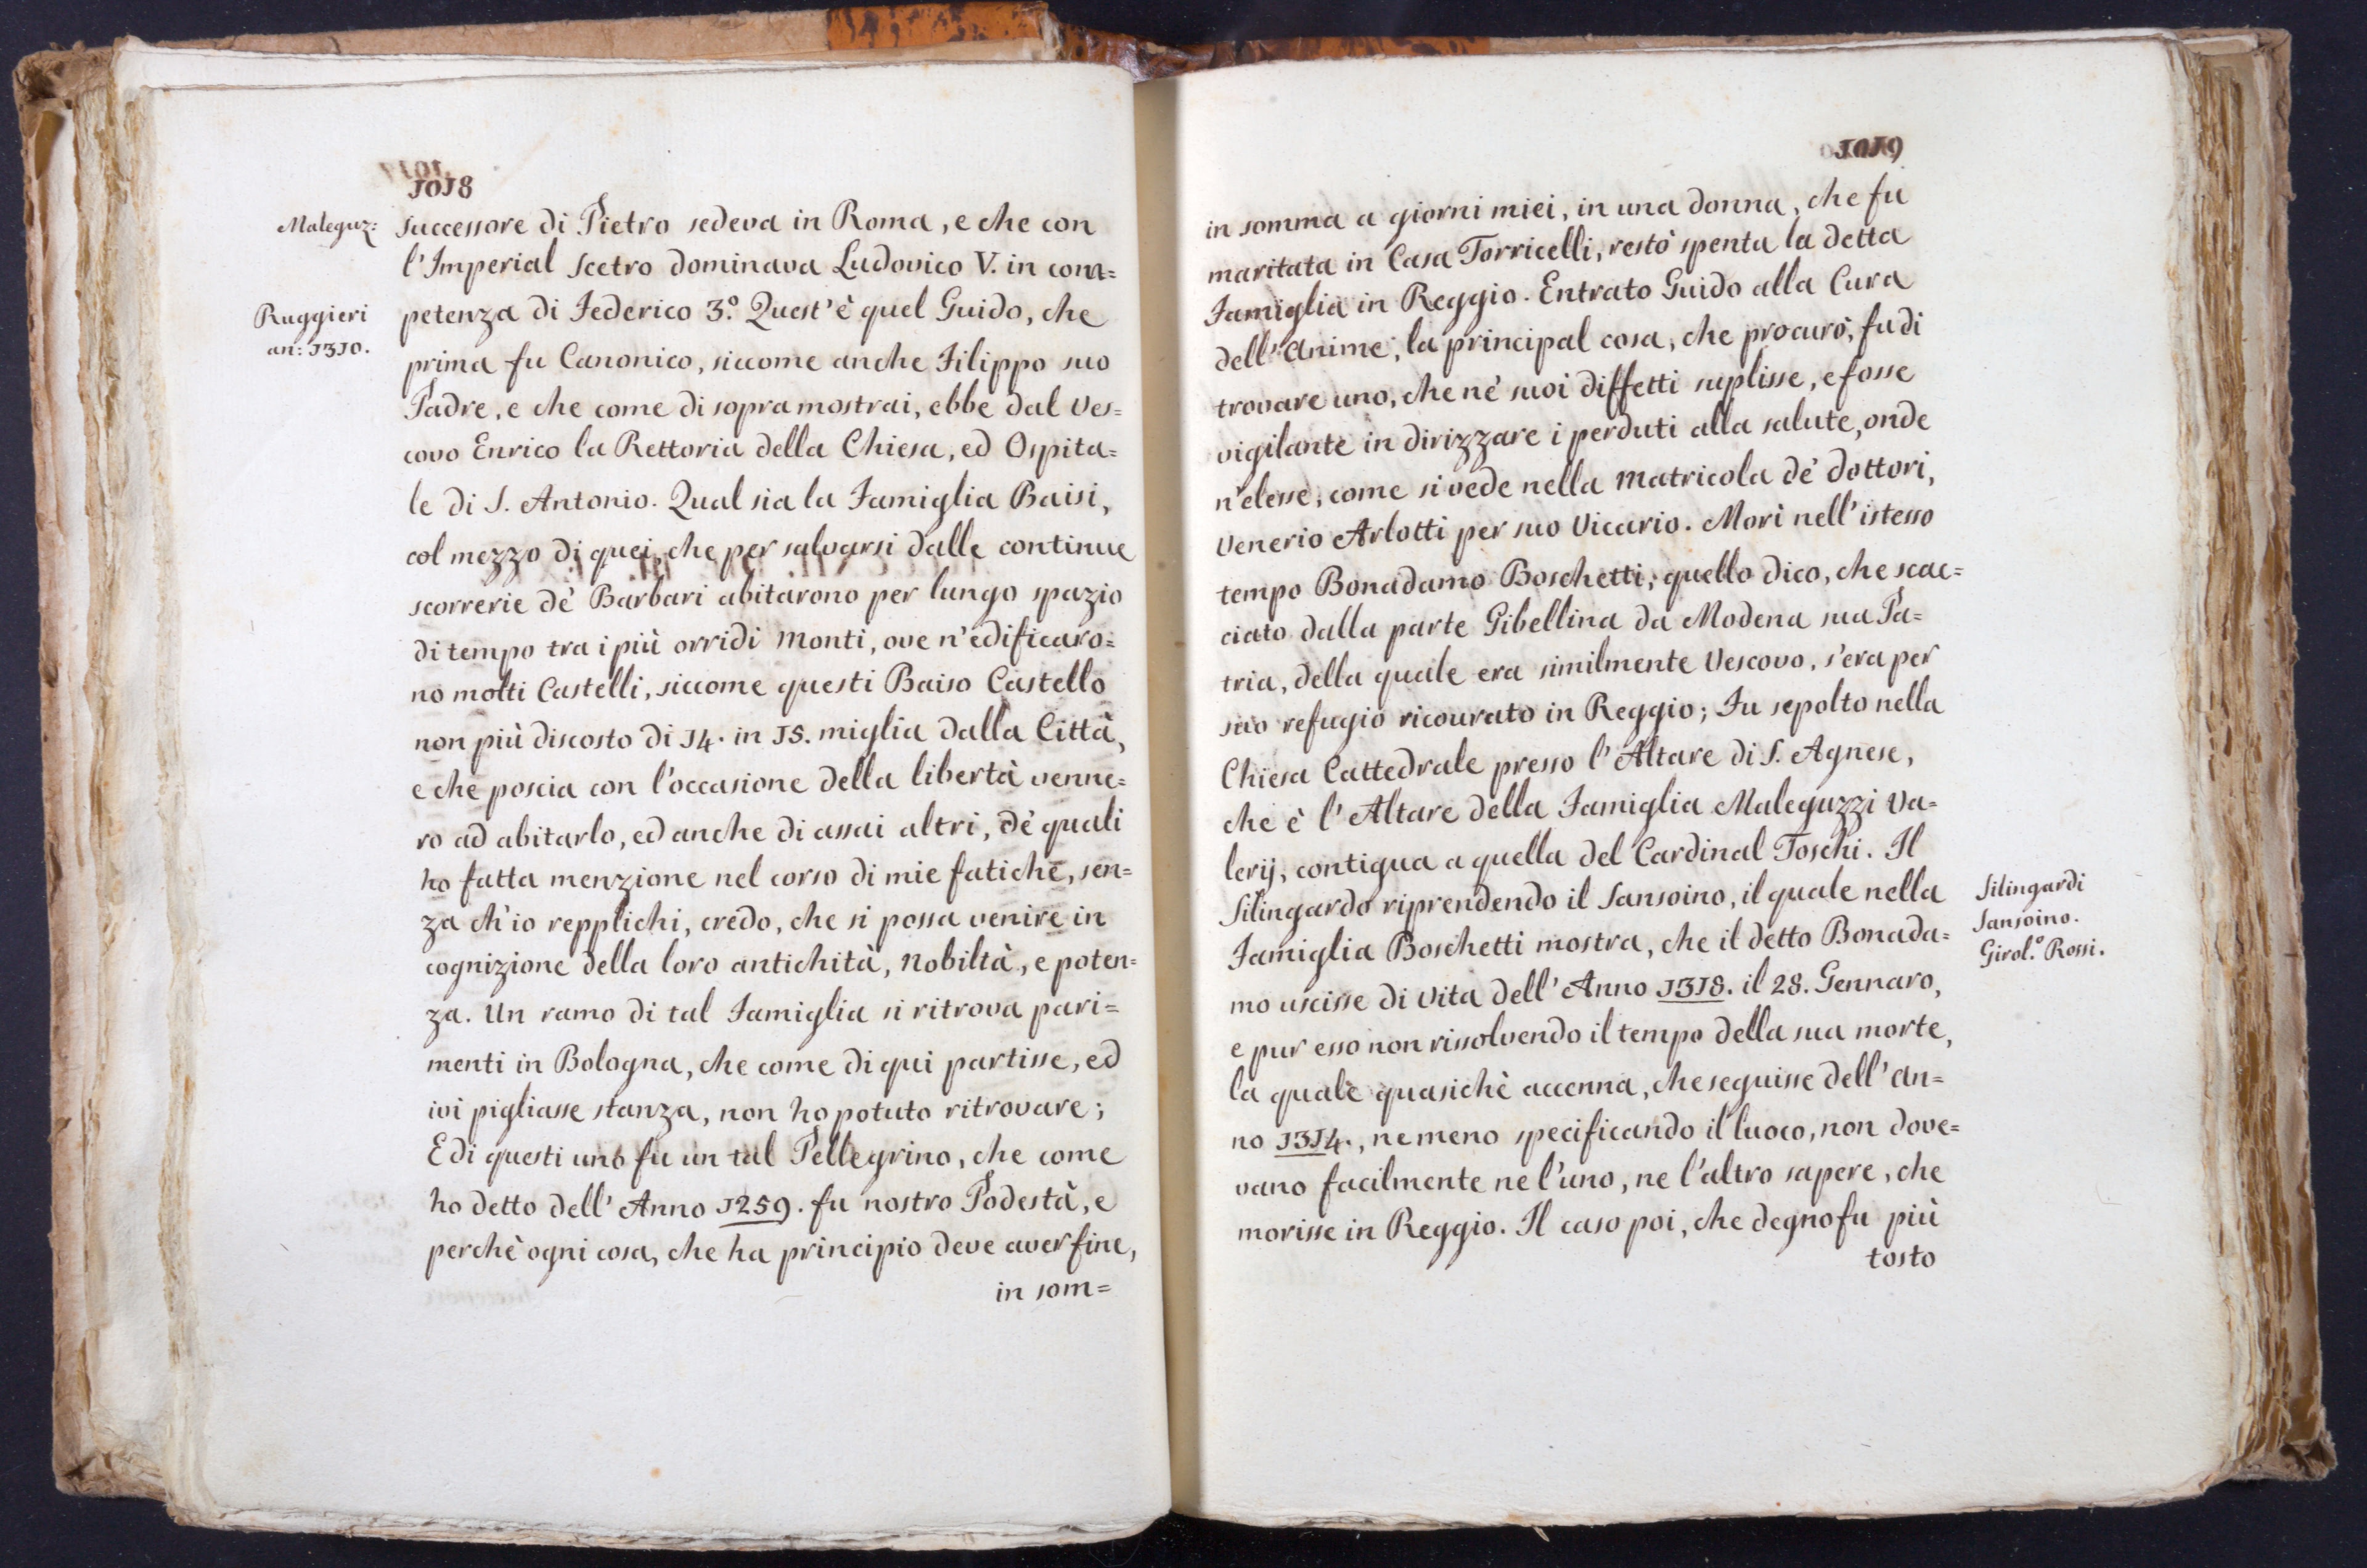 1018
Maleguz:
Ruggieri
an: 1310.
successore di Pietro sedeva in Roma, e che con
l'Imperial Scetro dominava Ludovico V. in com=
petenza di Federico 3.º Quest'è quel Guido, che
prima fu Canonico, siccome anche Filippo suo
Padre, e che come di sopra mostrai, ebbe dal Ves=
covo Enrico la Rettoria della Chiesa, ed Ospita=
le di S. Antonio. Qual sia la Famiglia Baisi,
col mezzo di quei, che per salvarsi dalle continue
scorrerie de' Barbari abitarono per lungo spazio
di tempo tra i più orridi Monti, ove n'edificaro=
no molti Castelli, siccome questi Baiso Castello
non più discosto di 14. in 15. miglia dalla Città,
e che poscia con l'occasione della libertà venne=
ro ad abitarlo, ed anche di assai altri, de' quali
ho fatta menzione nel corso di mie fatiche, sen=
za ch'io repplichi, credo, che si possa venire in
cognizione della loro antichità, Nobiltà, e poten=
za. Un ramo di tal Famiglia si ritrova pari=
menti in Bologna, che come di qui partisse, ed
ivi pigliasse stanza, non ho potuto ritrovare;
E di questi uno fu un tal Pellegrino, che come
ho detto dell' Anno 1259. fu nostro Podestà, e
perchè ogni cosa, che ha principio deve aver fine,
in som=
1019
in somma a giorni miei, in una donna, che fu
maritata in Casa Torricelli, restò spenta la detta
Famiglia in Reggio. Entrato Guido alla Cura
dell'Anime, la principal cosa, che procurò, fu di
trovare uno, che nè suoi diffetti suplisse, e fosse
vigilante in dirizzare i perduti alla salute, onde
n'elesse, come si vede nella Matricola de' Dottori,
Venerio Arlotti per suo Vicario. Morì nell'istesso
tempo Bonadamo Boschetti; quello dico, che scac=
ciato dalla parte Gibellina da Modena sua Pa=
tria, della quale era similmente Vescovo, s'era per
suo refugio ricovrato in Reggio; Fu sepolto nella
Chiesa Cattedrale presso l'Altare di S. Agnese,
che è l'Altare della Famiglia Maleguzzi Va=
lerij, contigua a quella del Cardinal Toschi. Il
Silingardo riprendendo il Sansoino, il quale nella
Famiglia Boschetti mostra, che il detto Bonada=
mo uscisse di Vita dell'Anno 1318. il 28. Gennaro,
e pur esso non rissolvendo il tempo della sua morte,
la quale quasichè accenna, che seguisse dell'An=
no 1314., ne meno specificando il luoco, non dove=
vano facilmente ne l'uno, ne l'altro sapere, che
morisse in Reggio. Il caso poi, che degno fu più
tosto
Silingardi
Sansoino.
Girol.º Rossi.